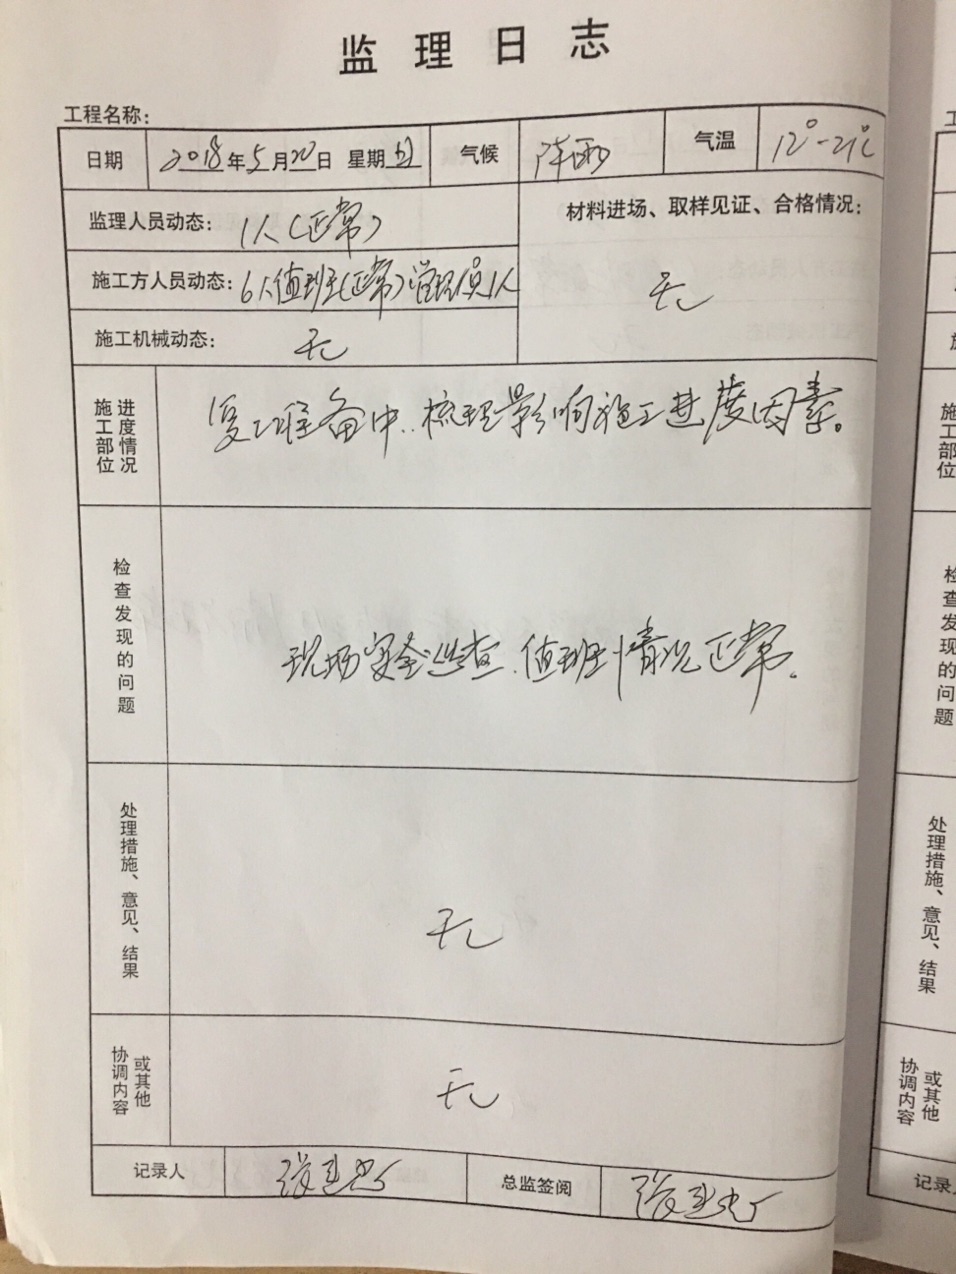 监理日志
工程名称:
日期 2018年5月20日 星期日 气候 阵雨 气温 12°-21℃
监理人员动态: 1人(正常)
材料进场、取样见证、合格情况:
无
施工方人员动态: 6人值班(正常)管理员1人
施工机械动态: 无
施工部位
进度情况
复工准备中、梳理影响施工进度因素。
检查发现的问题
现场安全巡查、值班情况正常。
处理措施、意见、结果
无
协调内容
或其他
无
记录人 总监签阅
工
施
施工部位
检查发现的问题
处理措施、意见、结果
协调内容
或其他
记录人